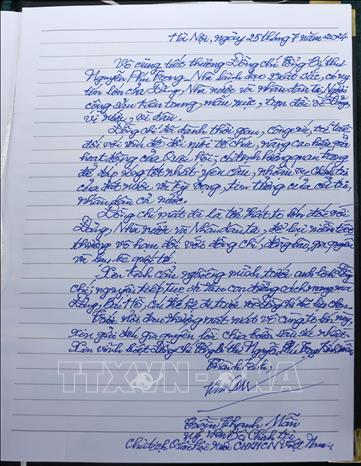 Hà Nội, ngày 25 tháng 7 năm 2024
Vô cùng tiếc thương Đồng chí Tổng Bí thư
Nguyễn Phú Trọng - Nhà lãnh đạo xuất sắc, có uy
tín lớn của Đảng, Nhà nước và nhân dân ta, Người
cộng sản kiên trung, mẫu mực, trọn đời vì Đảng,
vì nước, vì dân.
Đồng chí đã dành thời gian, công sức, trí tuệ
đối với vấn đề đổi mới tổ chức, nâng cao hiệu quả
hoạt động của Quốc hội;
để đáp ứng tốt nhất yêu cầu, nhiệm vụ chính trị
của đất nước và kỳ vọng, tin tưởng của cử tri,
nhân dân cả nước.
Đồng chí mất đi là tổn thất to lớn đối với
Đảng, Nhà nước và Nhân dân ta, để lại niềm tiếc
thương vô hạn đối với đồng chí, đồng bào, gia quyến
và bạn bè quốc tế.
Xin kính cẩn nghiêng mình trước anh linh Đồng
chí; nguyện tiếp tục đi theo con đường cách mạng mà
Đảng, Bác Hồ, các thế hệ đi trước và Đồng chí đã lựa chọn.
Trước nỗi đau thương mất mát vô cùng to lớn này,
xin gửi đến gia quyến lời chia buồn sâu sắc nhất.
Xin vĩnh biệt đồng chí Tổng Bí thư Nguyễn Phú Trọng kính mến.
TTXVN - VNA
Trần Thanh Mẫn
Uỷ viên Bộ Chính trị
Chủ tịch Quốc hội nước CHXHCN Việt Nam